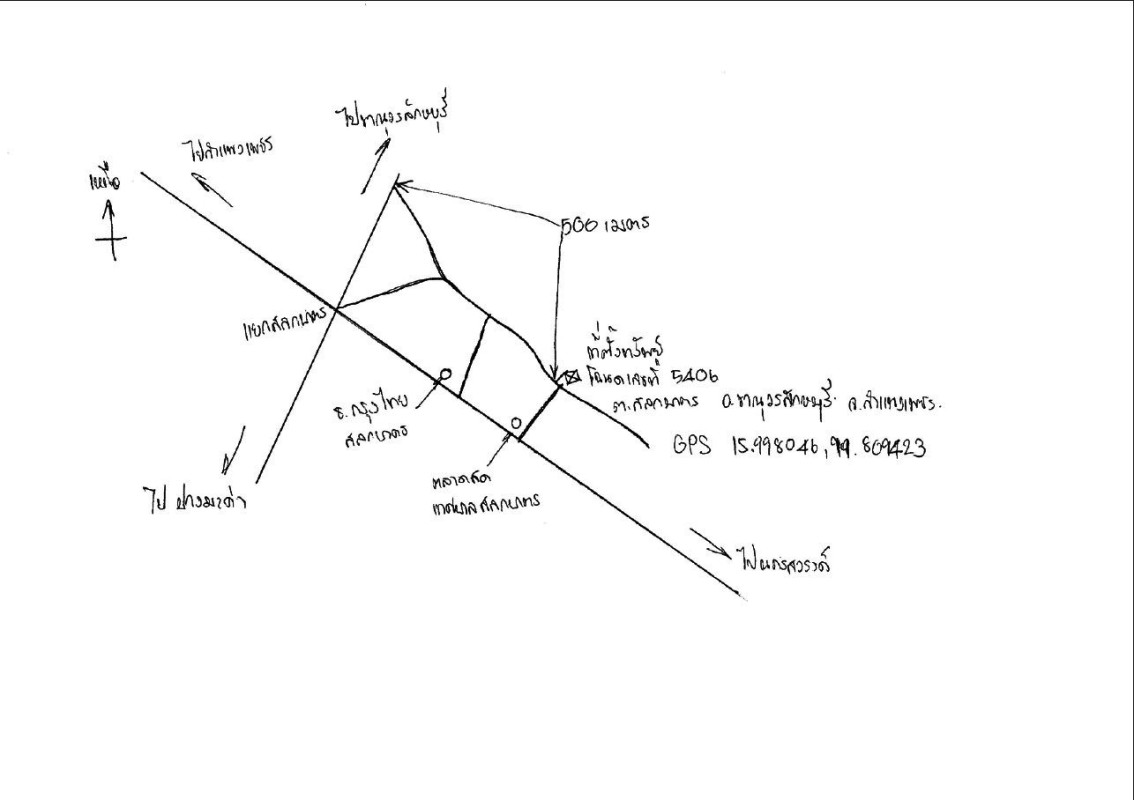 ไปขาณุวรลักษบุรี
ไปกำแพงเพชร
เหนือ
500 เมตร
แยกสลกบาตร
ที่ตั้งทรัพย์
โฉนดเลขที่ 5406
ต.สลกบาตร อ.ขาณุวรลักษบุรี จ.กำแพงเพชร.
GPS 15.998046, 99.809423
ธ.กรุงไทย
สลกบาตร
ตลาดสด
เทศบาลสลกบาตร
ไป ปางมะค่า
ไปนครสวรรค์